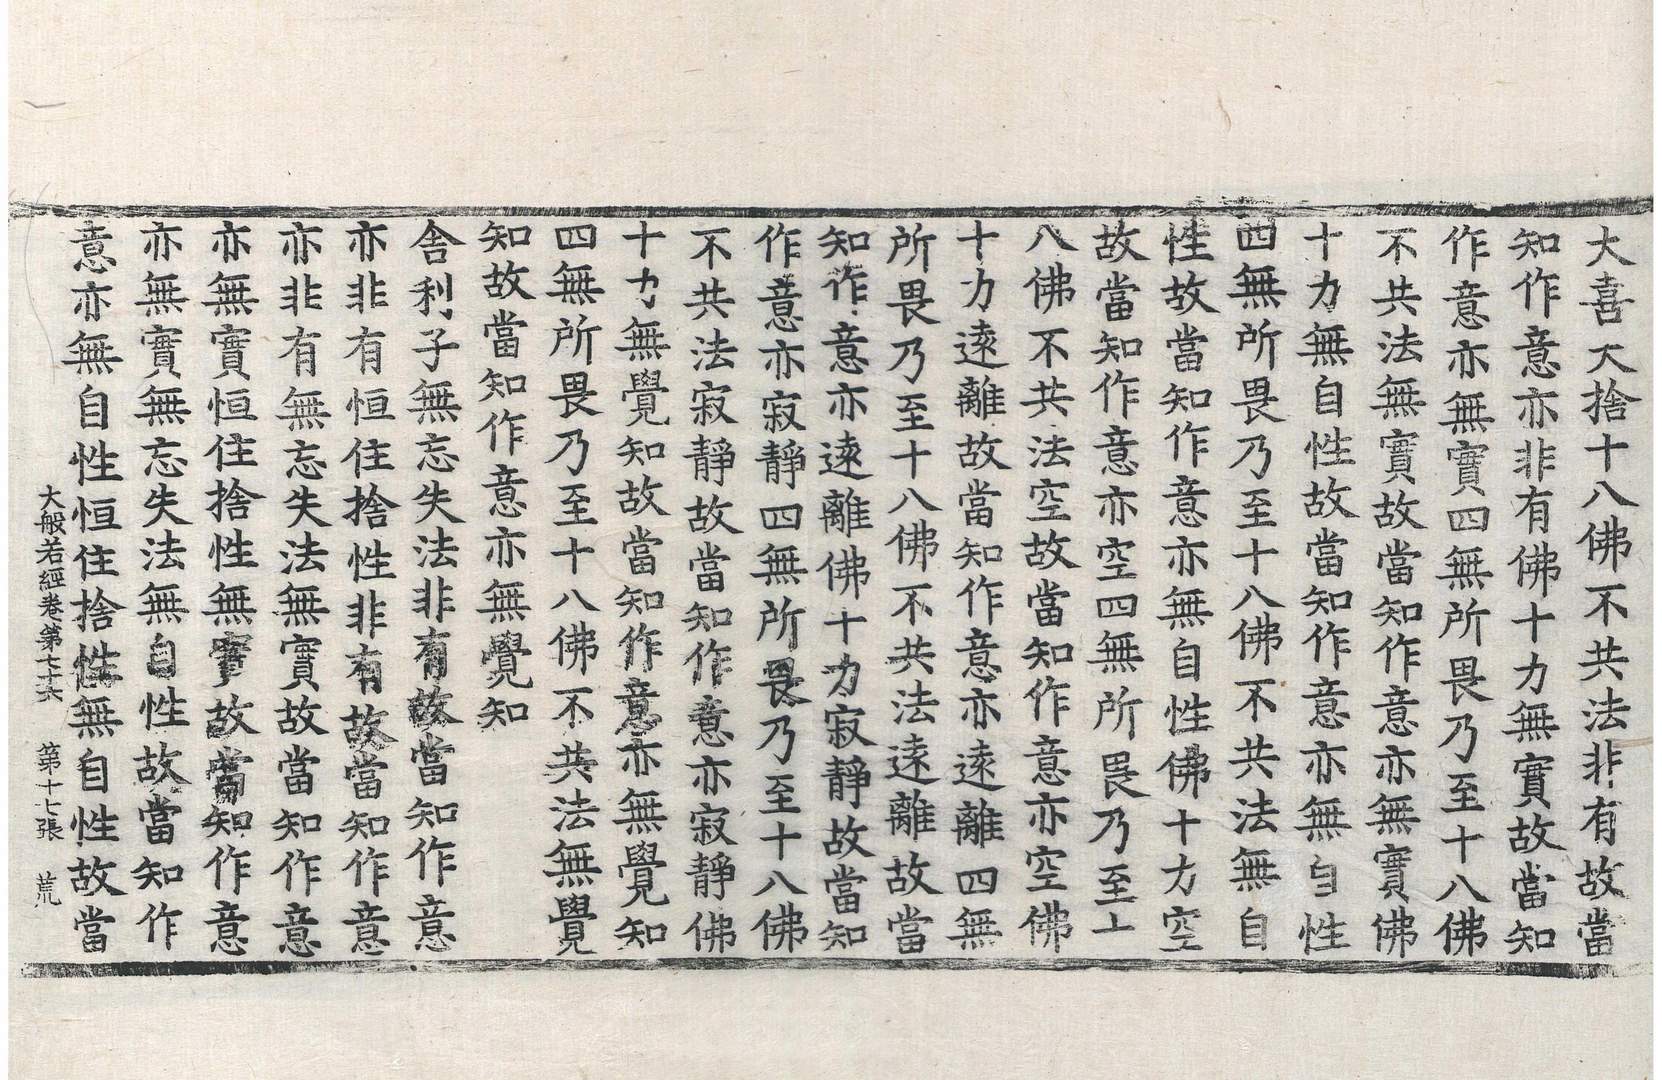 大喜大捨十八佛不共法非有故當
知作意亦非有佛十力無實故當知
作意亦無實四無所畏乃至十八佛
不共法無實故當知作意亦無實佛
十力無自性故當知作意亦無自性
四無所畏乃至十八佛不共法無自
性故當知作意亦無自性佛十力空
故當知作意亦空四無所畏乃至十
八佛不共法空故當知作意亦空佛
十力遠離故當知作意亦遠離四無
所畏乃至十八佛不共法遠離故當
知作意亦遠離佛十力寂靜故當知
作意亦寂靜四無所畏乃至十八佛
不共法寂靜故當知作意亦寂靜佛
十力無覺知故當知作意亦無覺知
四無所畏乃至十八佛不共法無覺
知故當知作意亦無覺知
舍利子無忘失法非有故當知作意
亦非有恒住捨性非有故當知作意
亦非有無忘失法無實故當知作意
亦無實恒住捨性無實故當知作意
亦無實無忘失法無自性故當知作
意亦無自性恒住捨性無自性故當
大般若經卷第七十六 第十七張 荒